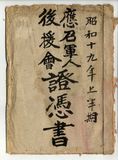 昭和十九年上半期
應召軍人
後援會
證憑書